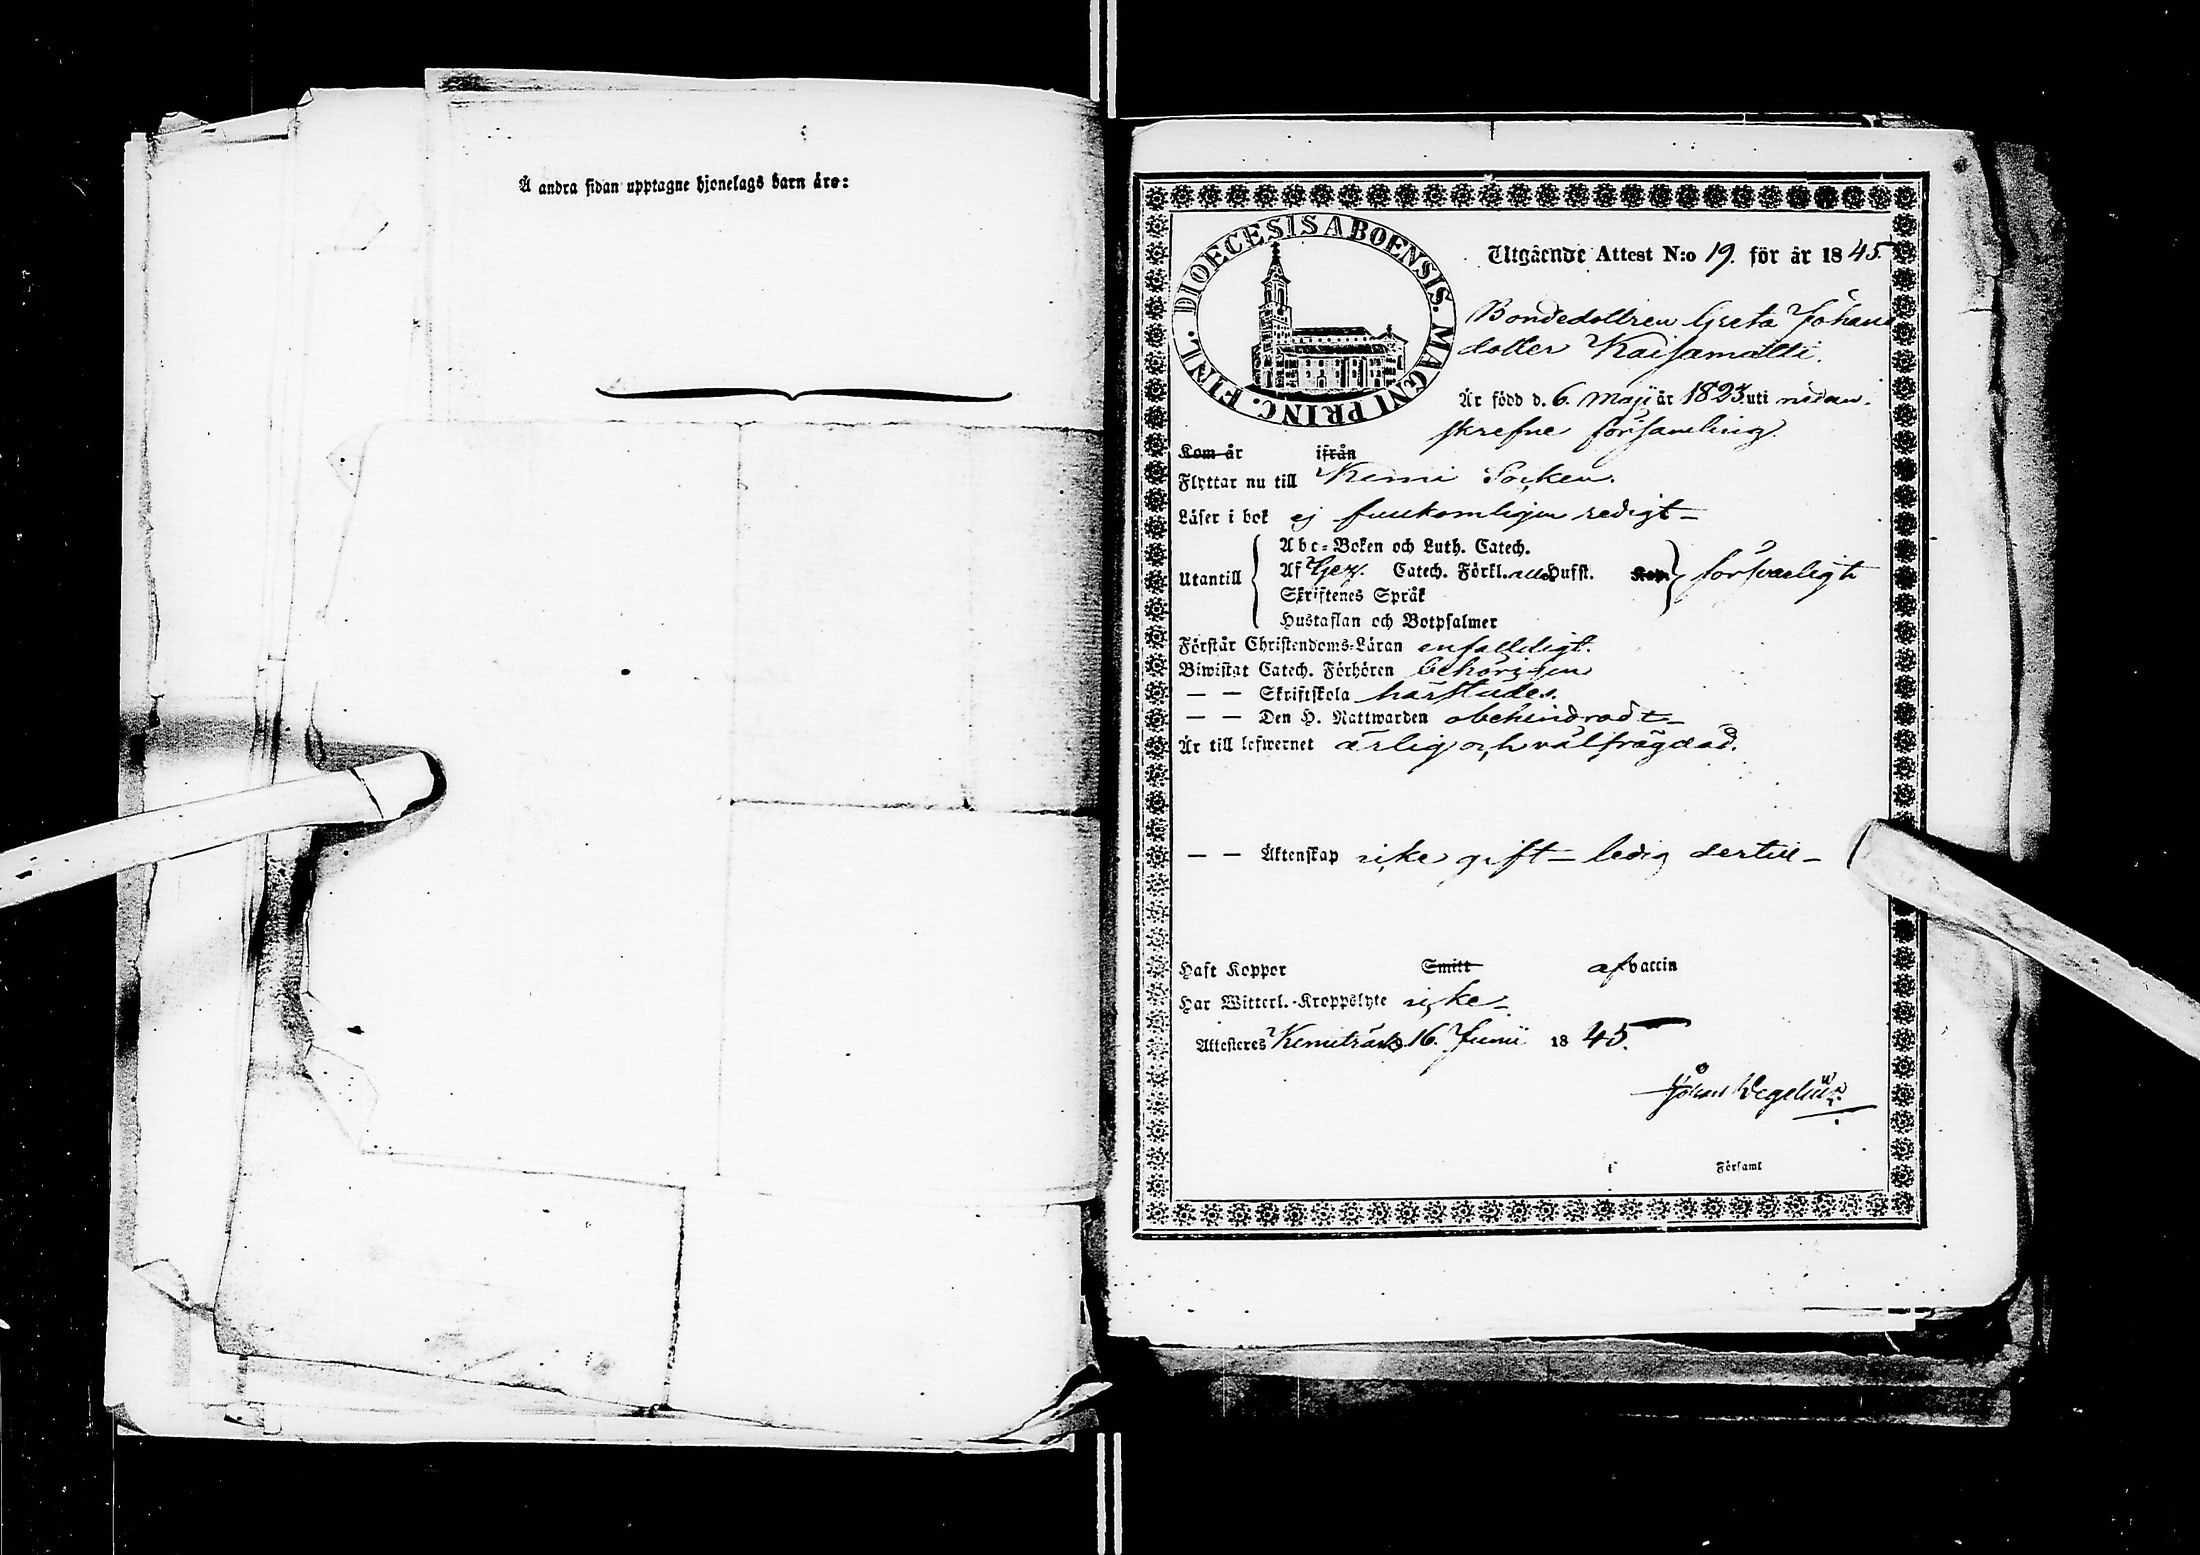 Å andra sidan upptagne hjonelags barn äro:
DIOECESIS ABOENSIS. MAGNI PRINC. FINL.
Utgående Attest N:o 19. för år 1845.
Bondedottren Greta Johans
dotter Kaisamatti.
Är född d. 6. Maji år 1823. uti nedan-
skrefne församling.
Kom år ifrån
Flyttar nu till Kemi Socken.
Läser i bok ej fullkomligen redigt-
Abc-Boken och Luth. Catech.
Utantill Af Gez. Catech. Förkl. alla Hufst. Kap. försvarligt
Skriftenes Språk
Hustaflan och Botpsalmer
Förstår Christendoms-Läran enfalldigt.
Biwistat Catech. Förhören behörigen
— — Skriftskola härstädes.
— — Den H. Nattwarden obehindradt-
Är till lefwernet ärlig och välfrägdad.
— — Äktenskap icke gift- ledig dertill-
Haft Koppor Smitt af vaccin
Har Witterl. Kroppslyte icke-
Attesteres Kemiträsk 16. Junii 1845.
Johan Wegelius.
i Församl